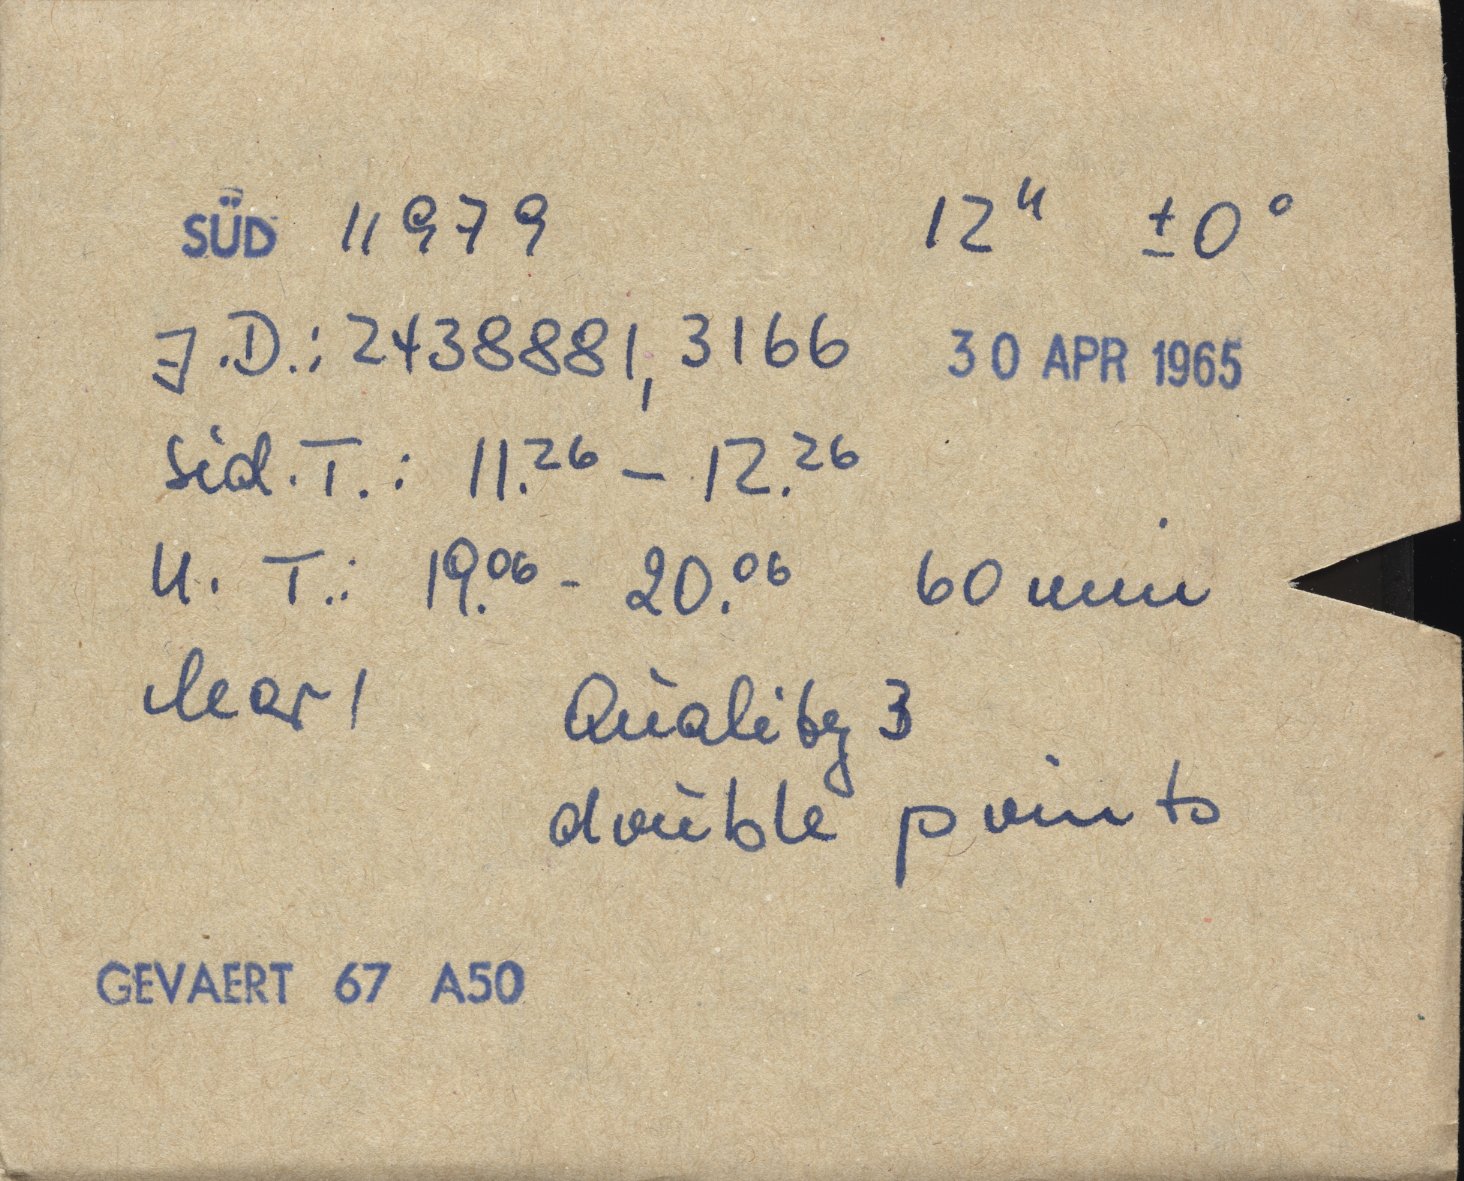 SÜD 11979 12ʰ ±0°
J.D.: 2438881,3166 30 APR 1965
Sid.T.: 11.²⁶ – 12.²⁶
U. T.: 19.⁰⁶ - 20.⁰⁶ 60 min
clear 1 Quality 3
double points
GEVAERT 67 A50